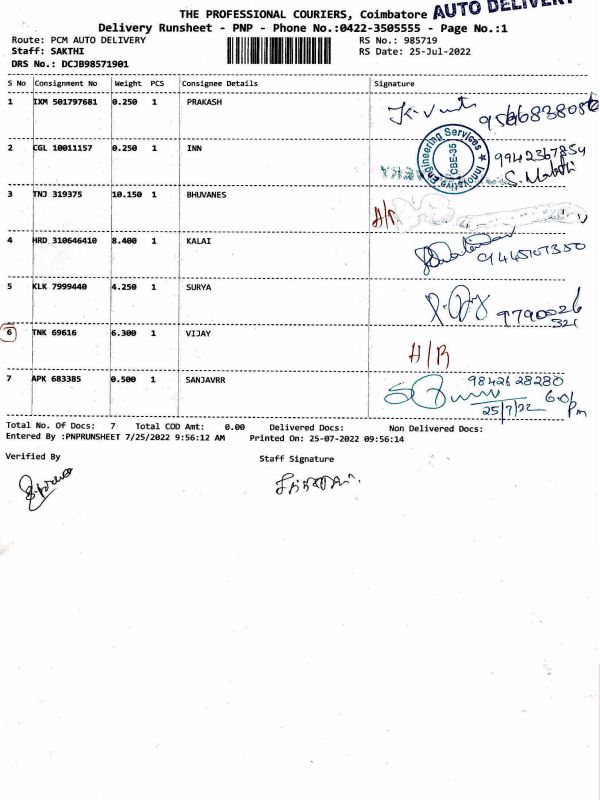 THE PROFESSIONAL COURIERS, Coimbatore AUTO DELIVERY
Delivery Runsheet - PNP - Phone No.:0422-3505555 - Page No.:1
Route: PCM AUTO DELIVERY RS No.: 985719
Staff: SAKTHI RS Date: 25-Jul-2022
DRS No.: DCJB98571901
S No Consignment No Weight PCS Consignee Details Signature
1 IXM 501797681 0.250 1 PRAKASH
2 CGL 10011157 0.250 1 INN 9942367854
Innovative Engineering Services
CBE-35
3 TNJ 319375 10.150 1 BHUVANES
4 HRD 310646410 8.400 1 KALAI 9445107350
5 KLK 7999440 4.250 1 SURYA 9790026
321
6 TNK 69616 6.300 1 VIJAY
A/R
7 APK 683385 0.500 1 SANJAVRR 9842628280
25/7/22 6.01
Pm
Total No. Of Docs: 7 Total COD Amt: 0.00 Delivered Docs: Non Delivered Docs:
Entered By :PNPRUNSHEET 7/25/2022 9:56:12 AM Printed On: 25-07-2022 09:56:14
Verified By Staff Signature